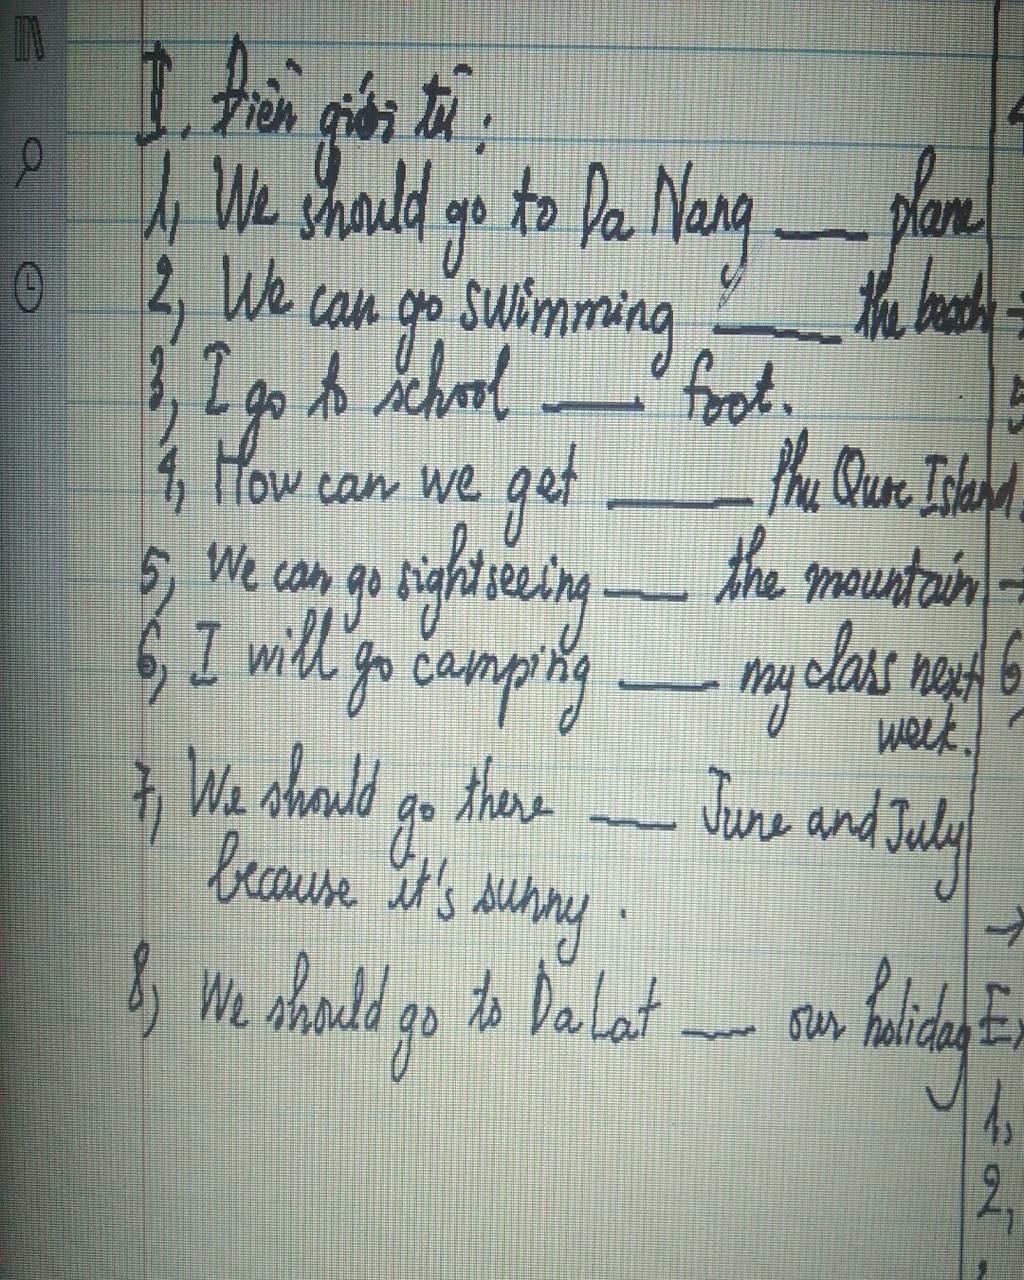 I. Điền giới từ:
1, We should go to Da Nang ___ plane
2, We can go swimming ___ the beach
3, I go to school ___ foot.
4, How can we get ___ Phu Quoc Island.
5, We can go sightseeing ___ the mountain
6, I will go camping ___ my class next
week.
7, We should go there ___ June and July
because it's sunny.
8, We should go to Da Lat ___ our holiday
5
6,
→
E,
1,
2,